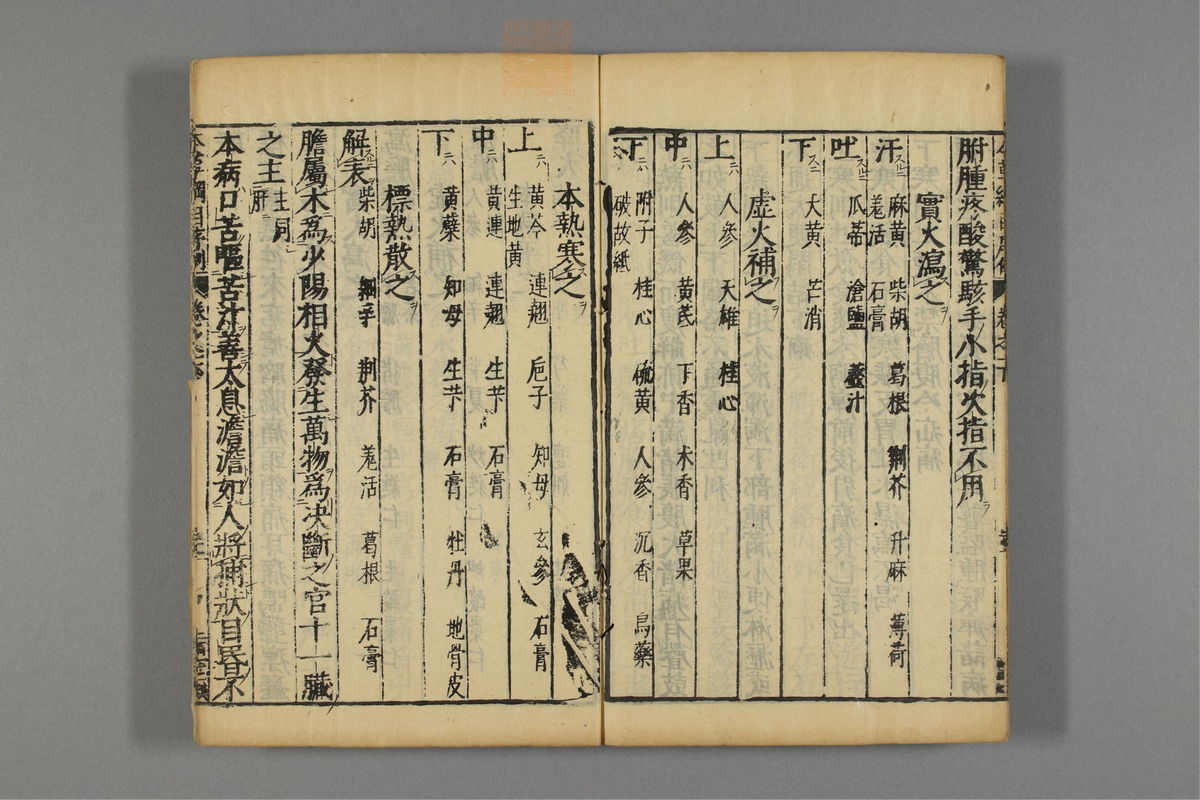 胕腫疼酸驚駭手小指次指不用
實火瀉之
汗 麻黄 柴胡 葛根 荆芥 升麻 薄荷
羗活 石膏
吐 瓜蒂 滄鹽 虀汁
下 大黄 芒消
虚火補之
上 人參 天雄 桂心
中 人參 黄芪 丁香 木香 草果
下 附子 桂心 硫黄 人參 沉香 烏藥
破故紙
本熱寒之
上 黄芩 連翹 巵子 知母 玄參 石膏
生地黄
中 黄連 連翹 生芐 石膏
下 黄蘗 知母 生芐 石膏 牡丹 地骨皮
標熱散之
解表 柴胡 細辛 荆芥 羗活 葛根 石膏
膽屬木爲少陽相火發生萬物爲决斷之官十一臟
之主 主同肝
本病口苦嘔苦汁善太息澹澹如人將捕狀目昏不